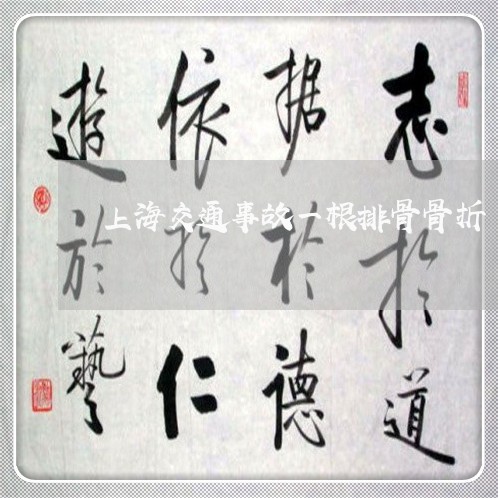 志於道
据於德
依於仁
遊於藝
上海交通事故一根排骨骨折